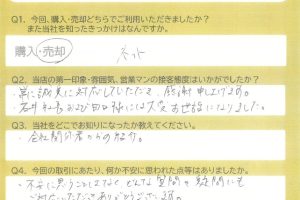 Q1. 今回、購入・売却どちらでご利用いただきましたか?
また当社を知ったきっかけはなんですか。
購入・売却 ネット
Q2. 当店の第一印象・雰囲気、営業マンの接客態度はいかがでしたか?
・常に誠実に対応していただき、感謝申し上げます。
には大変お世話になりました。
Q3. 当社をどこでお知りになったか教えてください。
・会社関係者からの紹介。
Q4. 今回の取引にあたり、何か不安に思われた点等はありましたか。
・不安に思うことはなく、どんな質問や疑問にも
ありがとうございます。